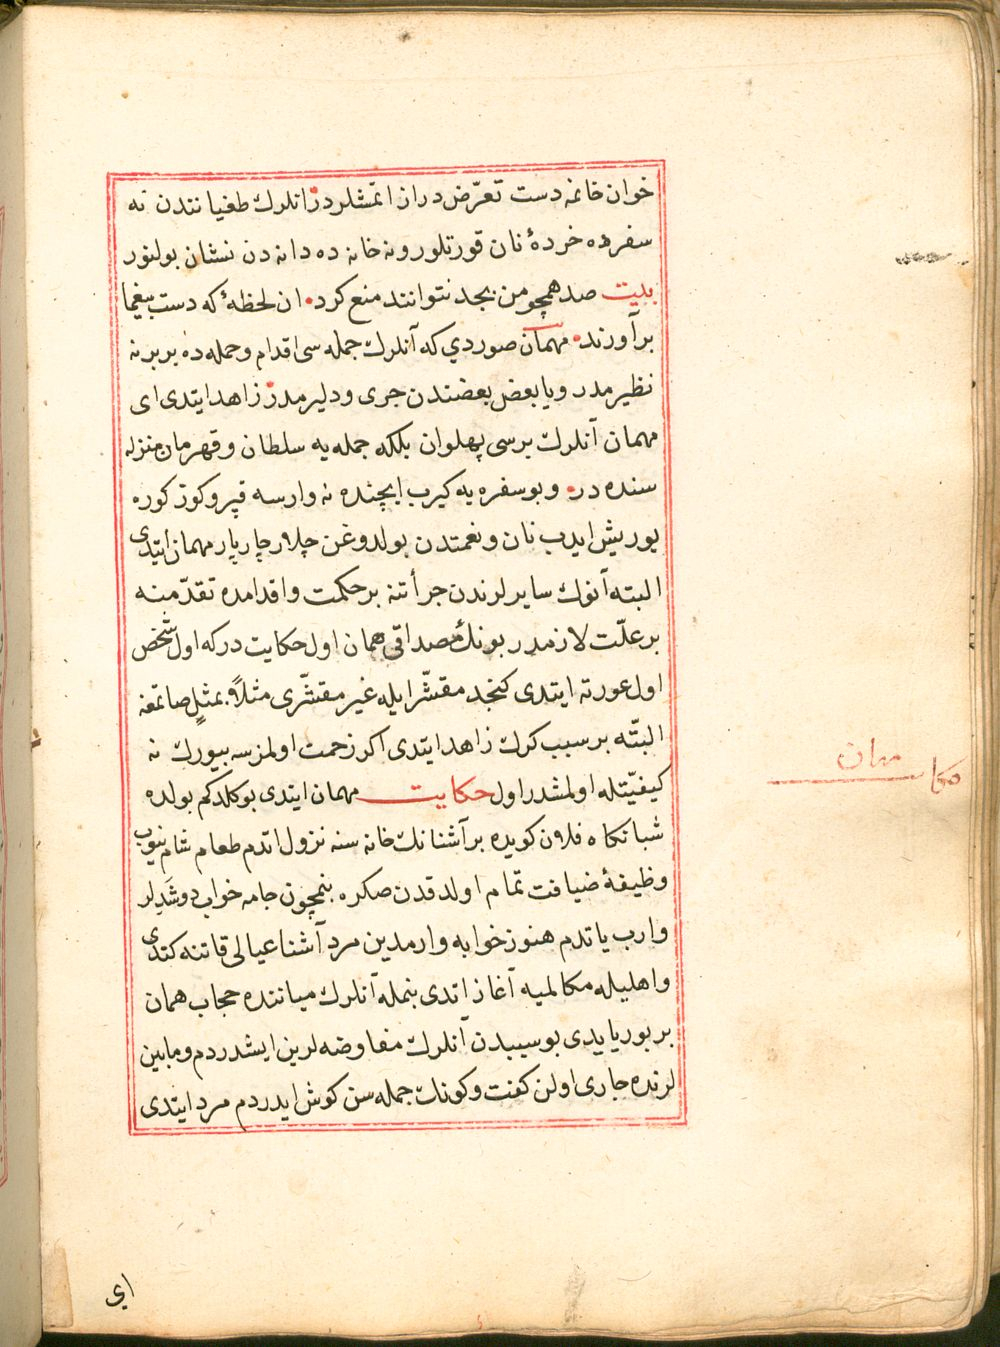 خوان خانمه دست تعرّض دراز اتمشلردر انلرك طغیانندن نه
سفره ده خردهٔ نان قورتلور ونه خانه ده دانه دن نشان بولنور
بیت صد همچو من بجد نتوانند منع کرد ان لحظهٔ که دست بیغما
برآورند مهمان صوردي که آنلرك جمله سی اقدام وحمله ده بربرنه
نظیرمدر ویا بعض بعضندن جری ودلیرمدر زاهد ایتدی ای
مهمان آنلرك برسی پهلوان بلکه جمله یه سلطان وقهرمان منزله
سنده در وبو سفره یه کیرب ایچنده نه وارسه قپر وکوز کوره
یوریش ایدب نان ونعمتدن بولدوغن چلار چارپار مهمان ایتدی
البته آنوك سایرلرندن جرأتنه برحکمت واقدامده تقدّمنه
برعلّت لازمدر بونك مصداقی همان اول حکایت درکه اول شخص
اول عورته ایتدی کنجد مقشّر ایله غیر مقشّری مثلاً بمثلٍ صاتمغه
البتّه برسبب کرك زاهد ایتدی اکر زحمت اولمزسه بیورك نه
کیفیّتله اولمشدر اول حکایت مهمان ایتدی بو کلدکم یولده
شبانکاه فلان کویده برآشنانك خانه سنه نزول اتدم طعام شام ینوب
وظیفهٔ ضیافت تمام اولدقدن صکره بنمچون جامه خواب دوشدلر
وارب یاتدم هنوز خوابه وارمدین مرد آشنا عیالی قاتنه کتدی
واهلیله مکالمیه آغاز اتدی بنمله آنلرك میاننده حجاب همان
بر بوریایدی بو سببدن آنلرك مفاوضه لرین ایشدردم ومابین
لرنده جاری اولن کفت وکونك جمله سن کوش ایدردم مرد ایتدی
ای